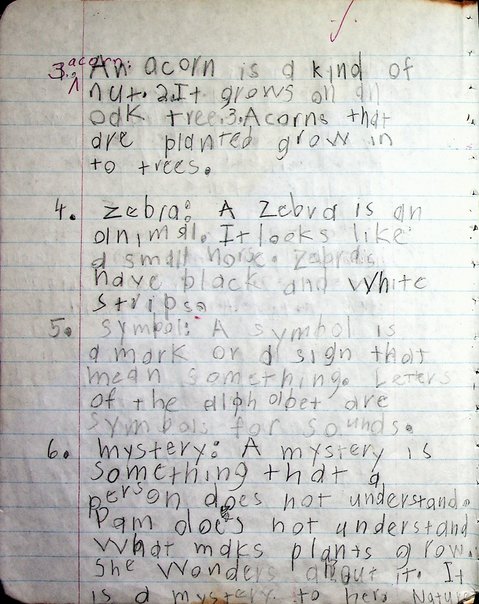 3. acorn: An acorn is a kind of
nut. 2. It grows on an
oak tree. 3. Acorns that
are planted grow in
to trees.
4. Zebra: A Zebra is an
animal. It looks like
a small horse. Zebras
have black and white
strips.
5. Symbol: A symbol is
a mark or a sign that
mean something. Leters
of the alphabet are
symbols for sounds.
6. mystery: A mystery is
something that a
person does not understand.
Pam does not understand
what maks plants grow.
She wonders about it. It
is a mystery to her. Nature